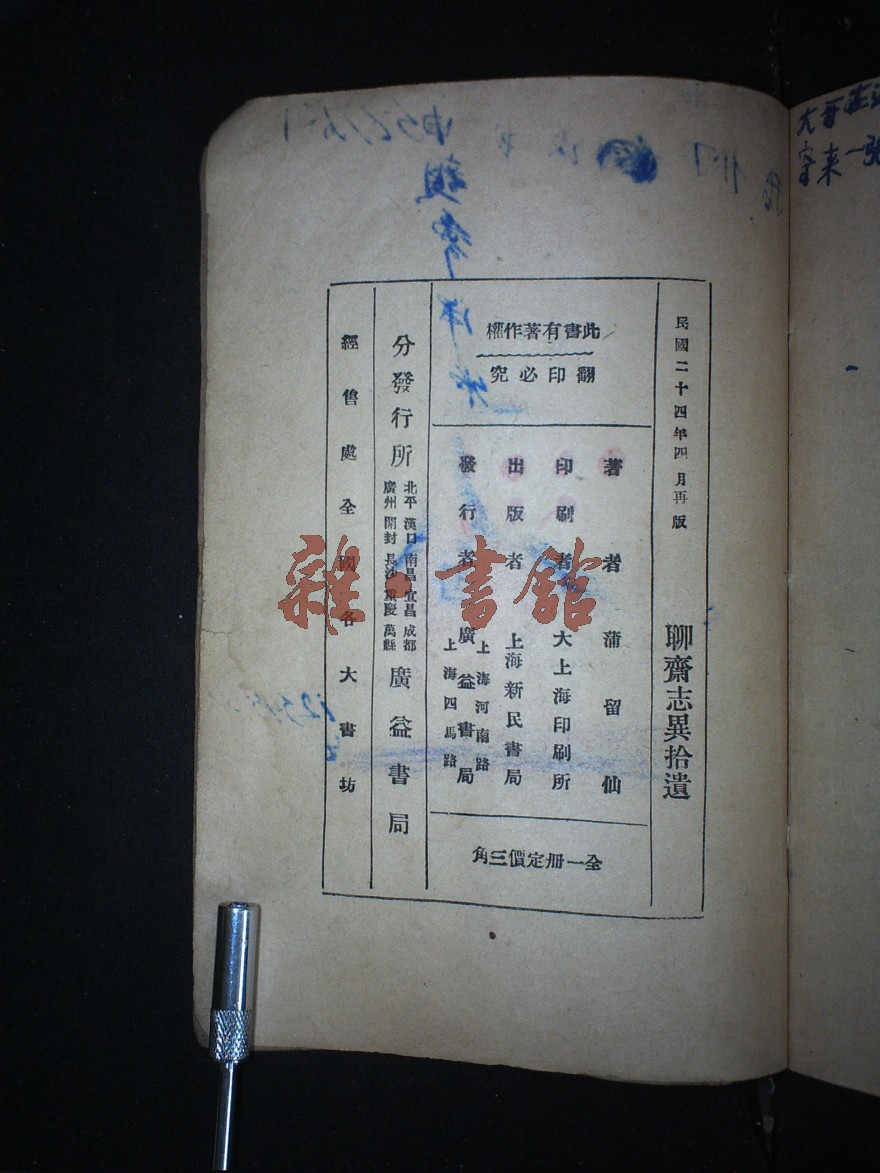 民國二十四年四月再版
聊齋志異拾遺
此書有著作權
翻印必究
著者 蒲留仙
印刷者 大上海印刷所
出版者 上海新民書局
發行者 廣益書局
上海河南路
上海四馬路
全一册定價三角
分發行所
北平 漢口 南昌 宜昌 成都
廣州 開封 長沙 重慶 萬縣
廣益書局
經售處全國各大書坊
雜·書館
大哥在
寄来一张